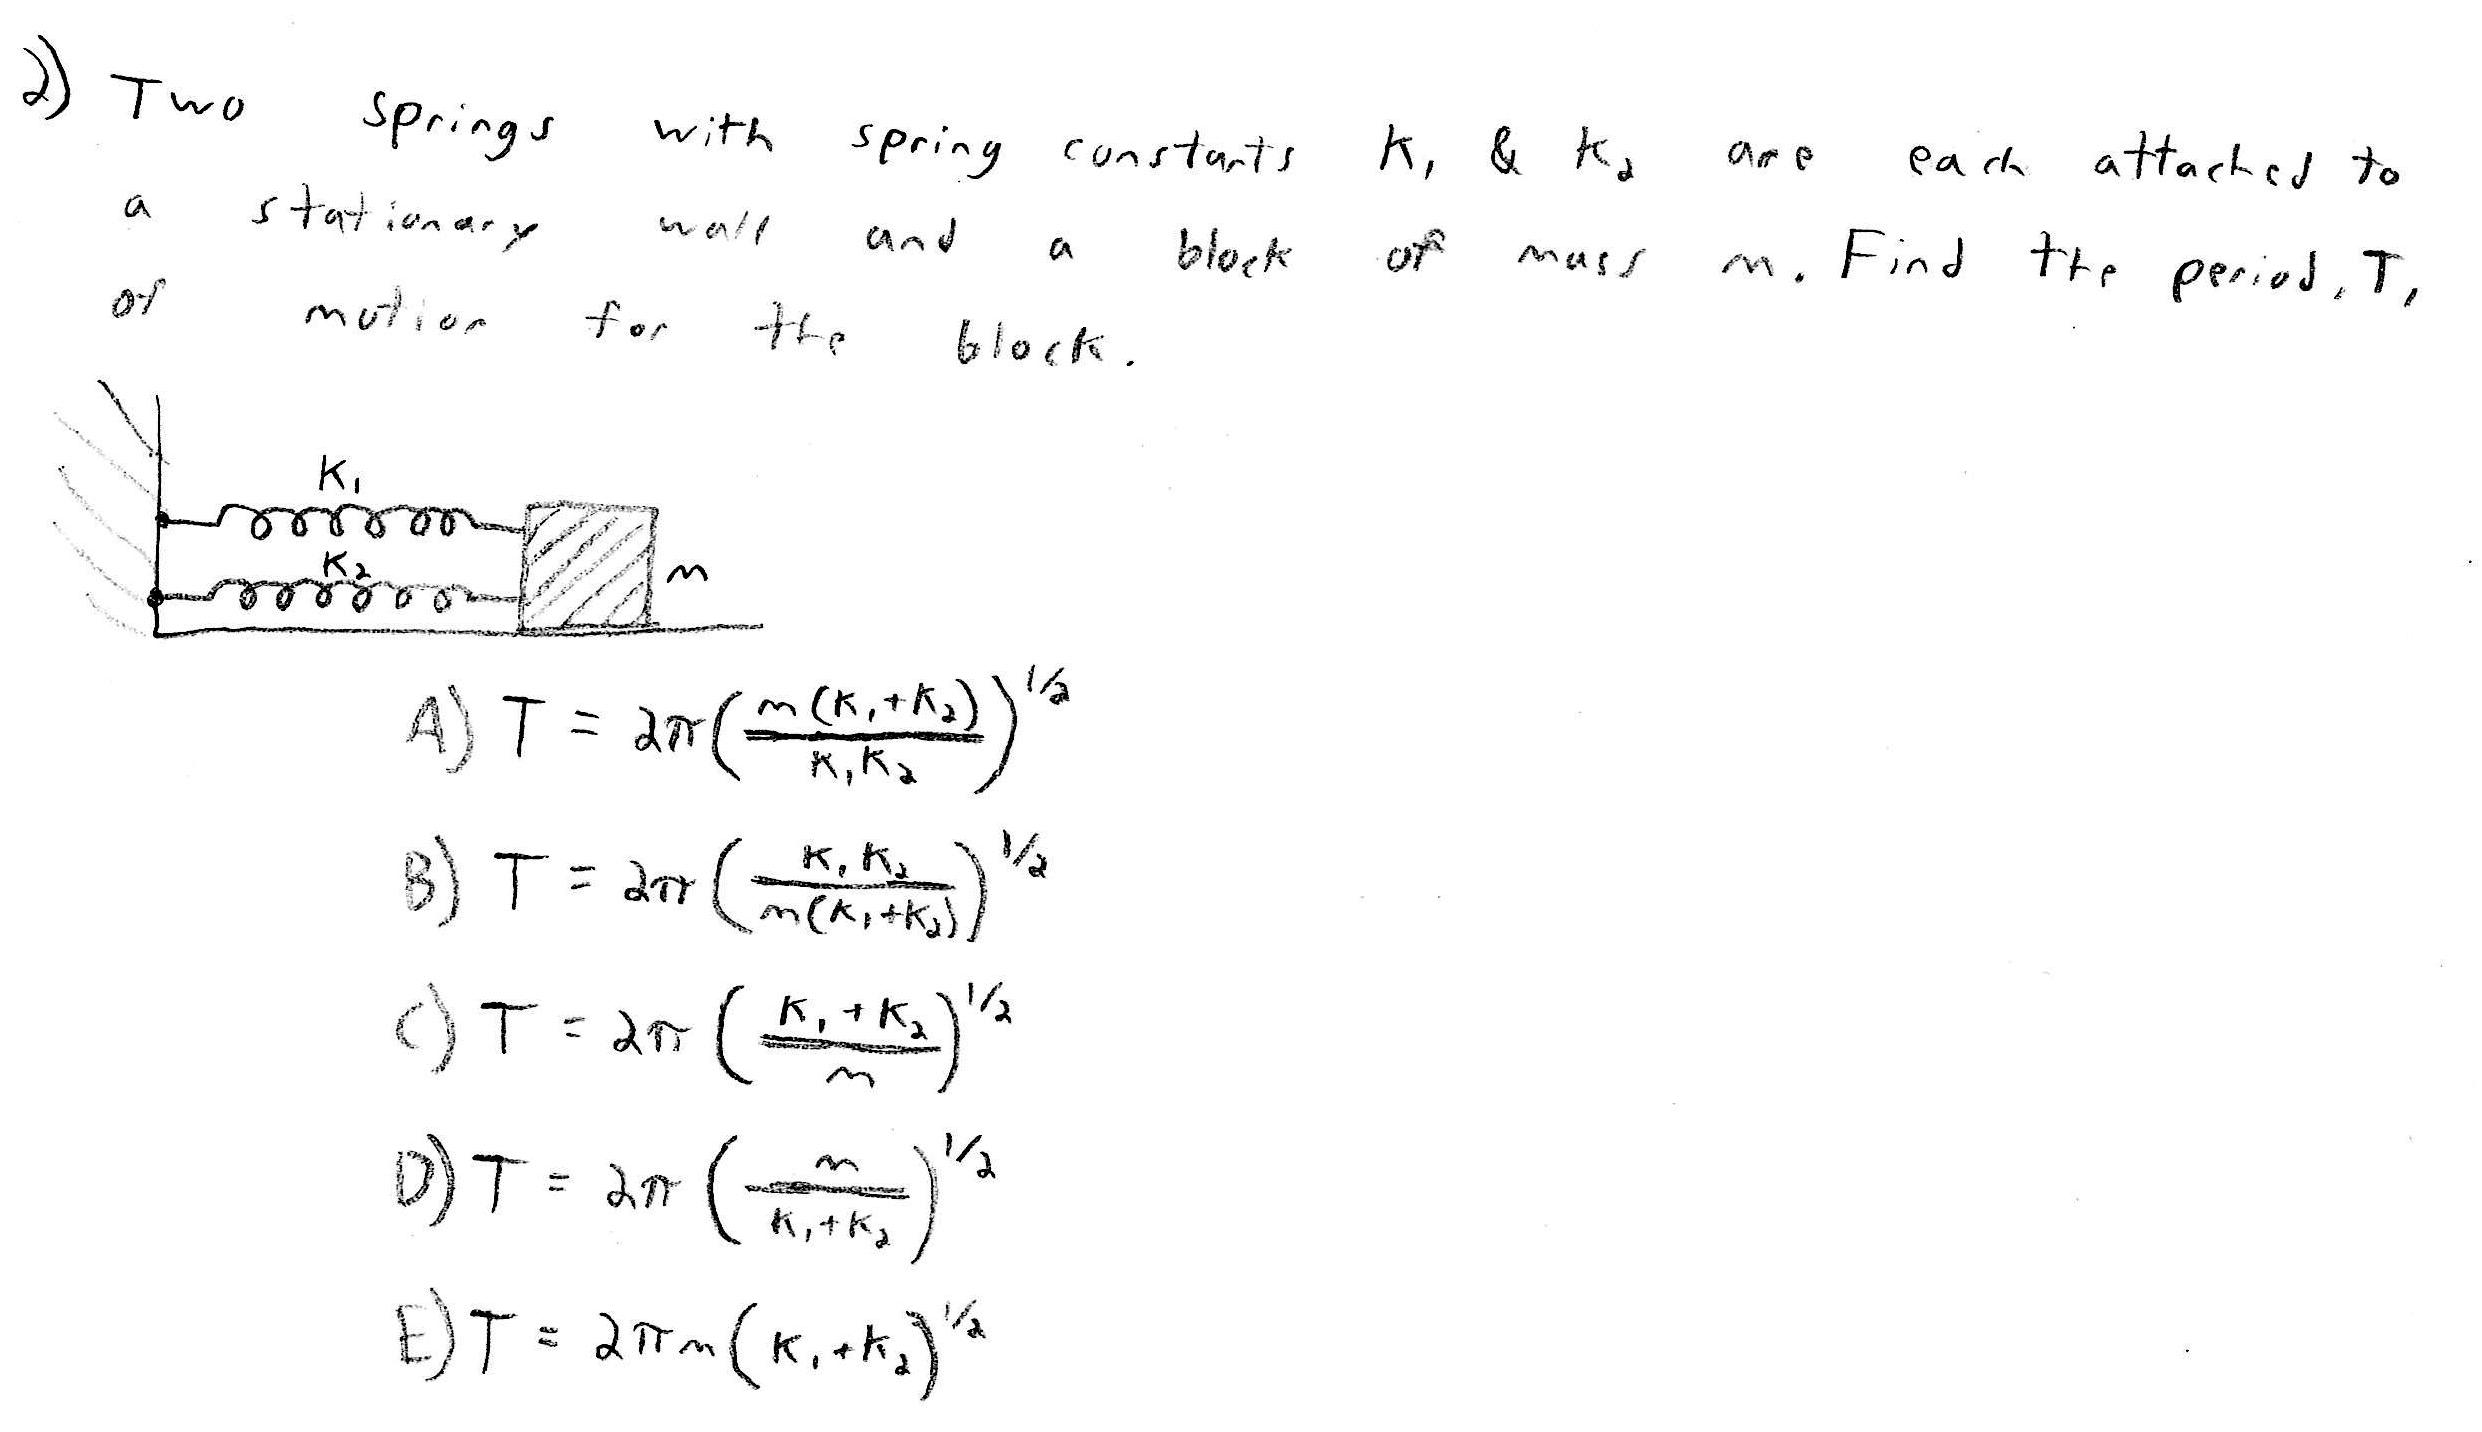 2) Two springs with spring constants K₁ & K₂ are each attached to
a stationary wall and a block of mass m. Find the period, T,
of motion for the block.
K₁
K₂
m
A) T = 2π(m(K₁+K₂)/K₁K₂)^1/2
B) T = 2π(K₁K₂/m(K₁+K₂))^1/2
C) T = 2π(K₁+K₂/m)^1/2
D) T = 2π(m/K₁+K₂)^1/2
E) T = 2πm(K₁+K₂)^1/2